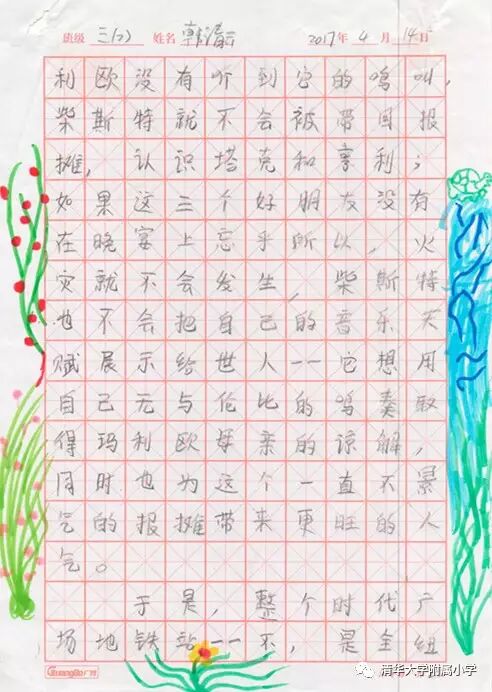 班级 三(2) 姓名 韩清云 2017年 4 月 14日
利欧没有听到它的鸣叫，
柴斯特就不会被带回报
摊，认识塔克和亨利；
如果这三个好朋友没有
在晚宴上忘乎所以，火
灾就不会发生，柴斯特
也不会把自己的音乐天
赋展示给世人——它想用
自己无与伦比的鸣奏取
得玛利欧母亲的谅解，
同时也为这个一直不景
气的报摊带来更旺的人
气。
于是，整个时代广
场地铁站——不，是全纽
GuangBo 广博
清华大学附属小学